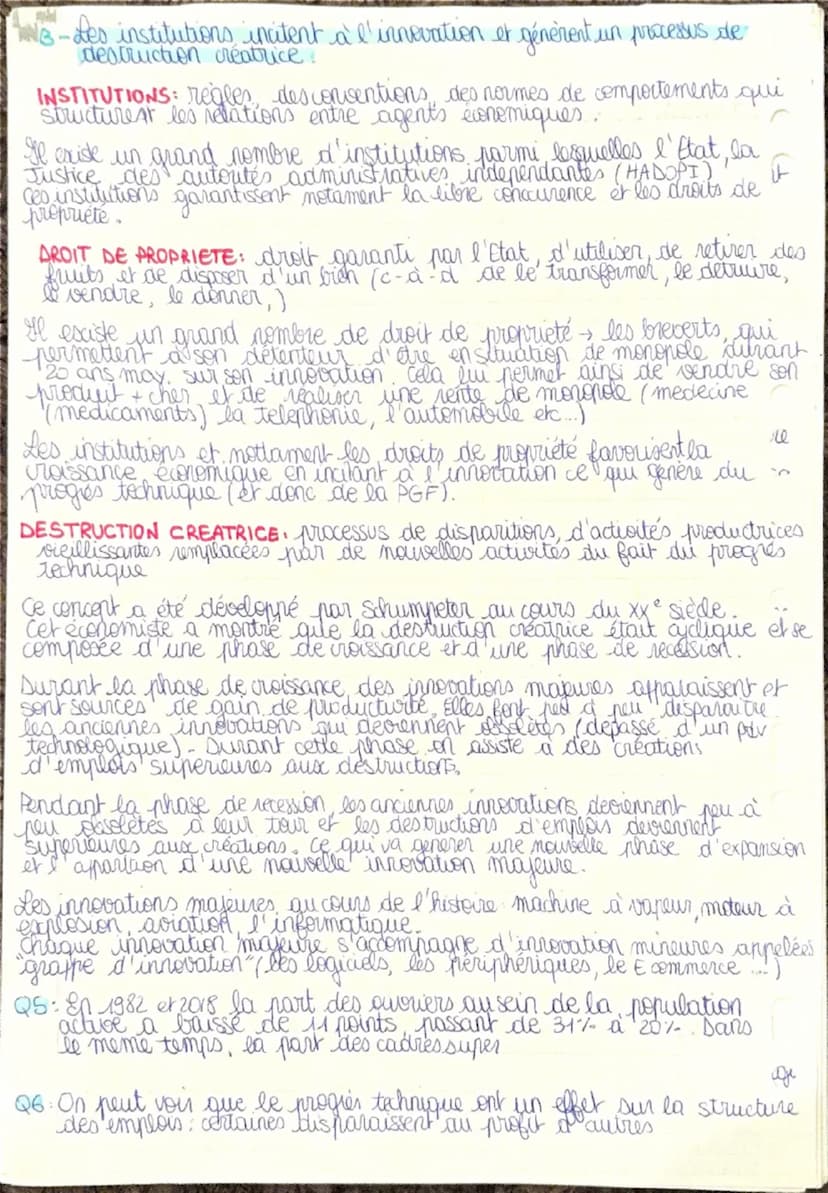 B - Les institutions incitent à l'innovation et génèrent un processus de
destruction créatrice.
INSTITUTIONS: règles, des conventions, des normes de comportements qui
structurent les relations entre agents économiques.
Il existe un grand nombre d'institutions parmi lesquelles l'Etat, la
Justice des autorités administratives indépendantes (HADOPI)
Ces institutions garantissent notament la libre concurence et les droits de
propriété.
DROIT DE PROPRIETE: droit garanti par l'Etat, d'utiliser, de retirer des
fruits et de disposer d'un bien (c-à-d de le transformer, le détruire,
le vendre, le donner,)
Il existe un grand nombre de droit de propriété → les breverts, qui
permettent à son détenteur d'être en situation de monopole durant
20 ans max. sur son innovation. Cela lui permet ainsi de vendre son
produit + cher et de réaliser une rente de monopole (médecine
(médicaments) la telephonie, l'automobile etc...)
Les institutions et nottament les droits de propriété favorisent la
croissance économique en incitant à l'innovation ce qui génère du
progrès technique (et donc de la PGF).
DESTRUCTION CREATRICE: processus de disparitions, d'activités productrices
vieillissantes remplacées par de nouvelles activités du fait du progrès
technique
Ce concept a été développé par Schumpeter au cours du XXe siècle.
Cet économiste a montré que la destruction créatrice était cyclique et se
composée d'une phase de croissance et d'une phase de récession.
Durant la phase de croissance des innovations majeures apparaissent et
sont sources de gain de productivité. Elles font peu à peu disparaitre
les anciennes innovations qui deviennent obsolètes (dépassé d'un pdv
technologique). Durant cette phase on assiste à des créations
d'emplois supérieures aux destructions.
Pendant la phase de récession, les anciennes innovations deviennent peu à
peu obsolètes à leur tour et les destructions d'emplois deviennent
supérieures aux créations. Ce qui va générer une nouvelle phase d'expansion
et l'apparition d'une nouvelle innovation majeure.
Les innovations majeures au cours de l'histoire: machine à vapeur, moteur à
explosion, aviation, l'informatique.
Chaque innovation majeure s'accompagne d'innovation mineures appelées
"grappe d'innovation" (les logiciels, les périphériques, le E commerce ...)
Q5: En 1982 et 2018 la part des ouvriers au sein de la population
active a baissé de 11 points, passant de 31% à 20%. Dans
le même temps, la part des cadres super
Q6: On peut voir que le progrès technique ont un effet sur la structure
des emplois: certaines disparaissent au profit d'autres